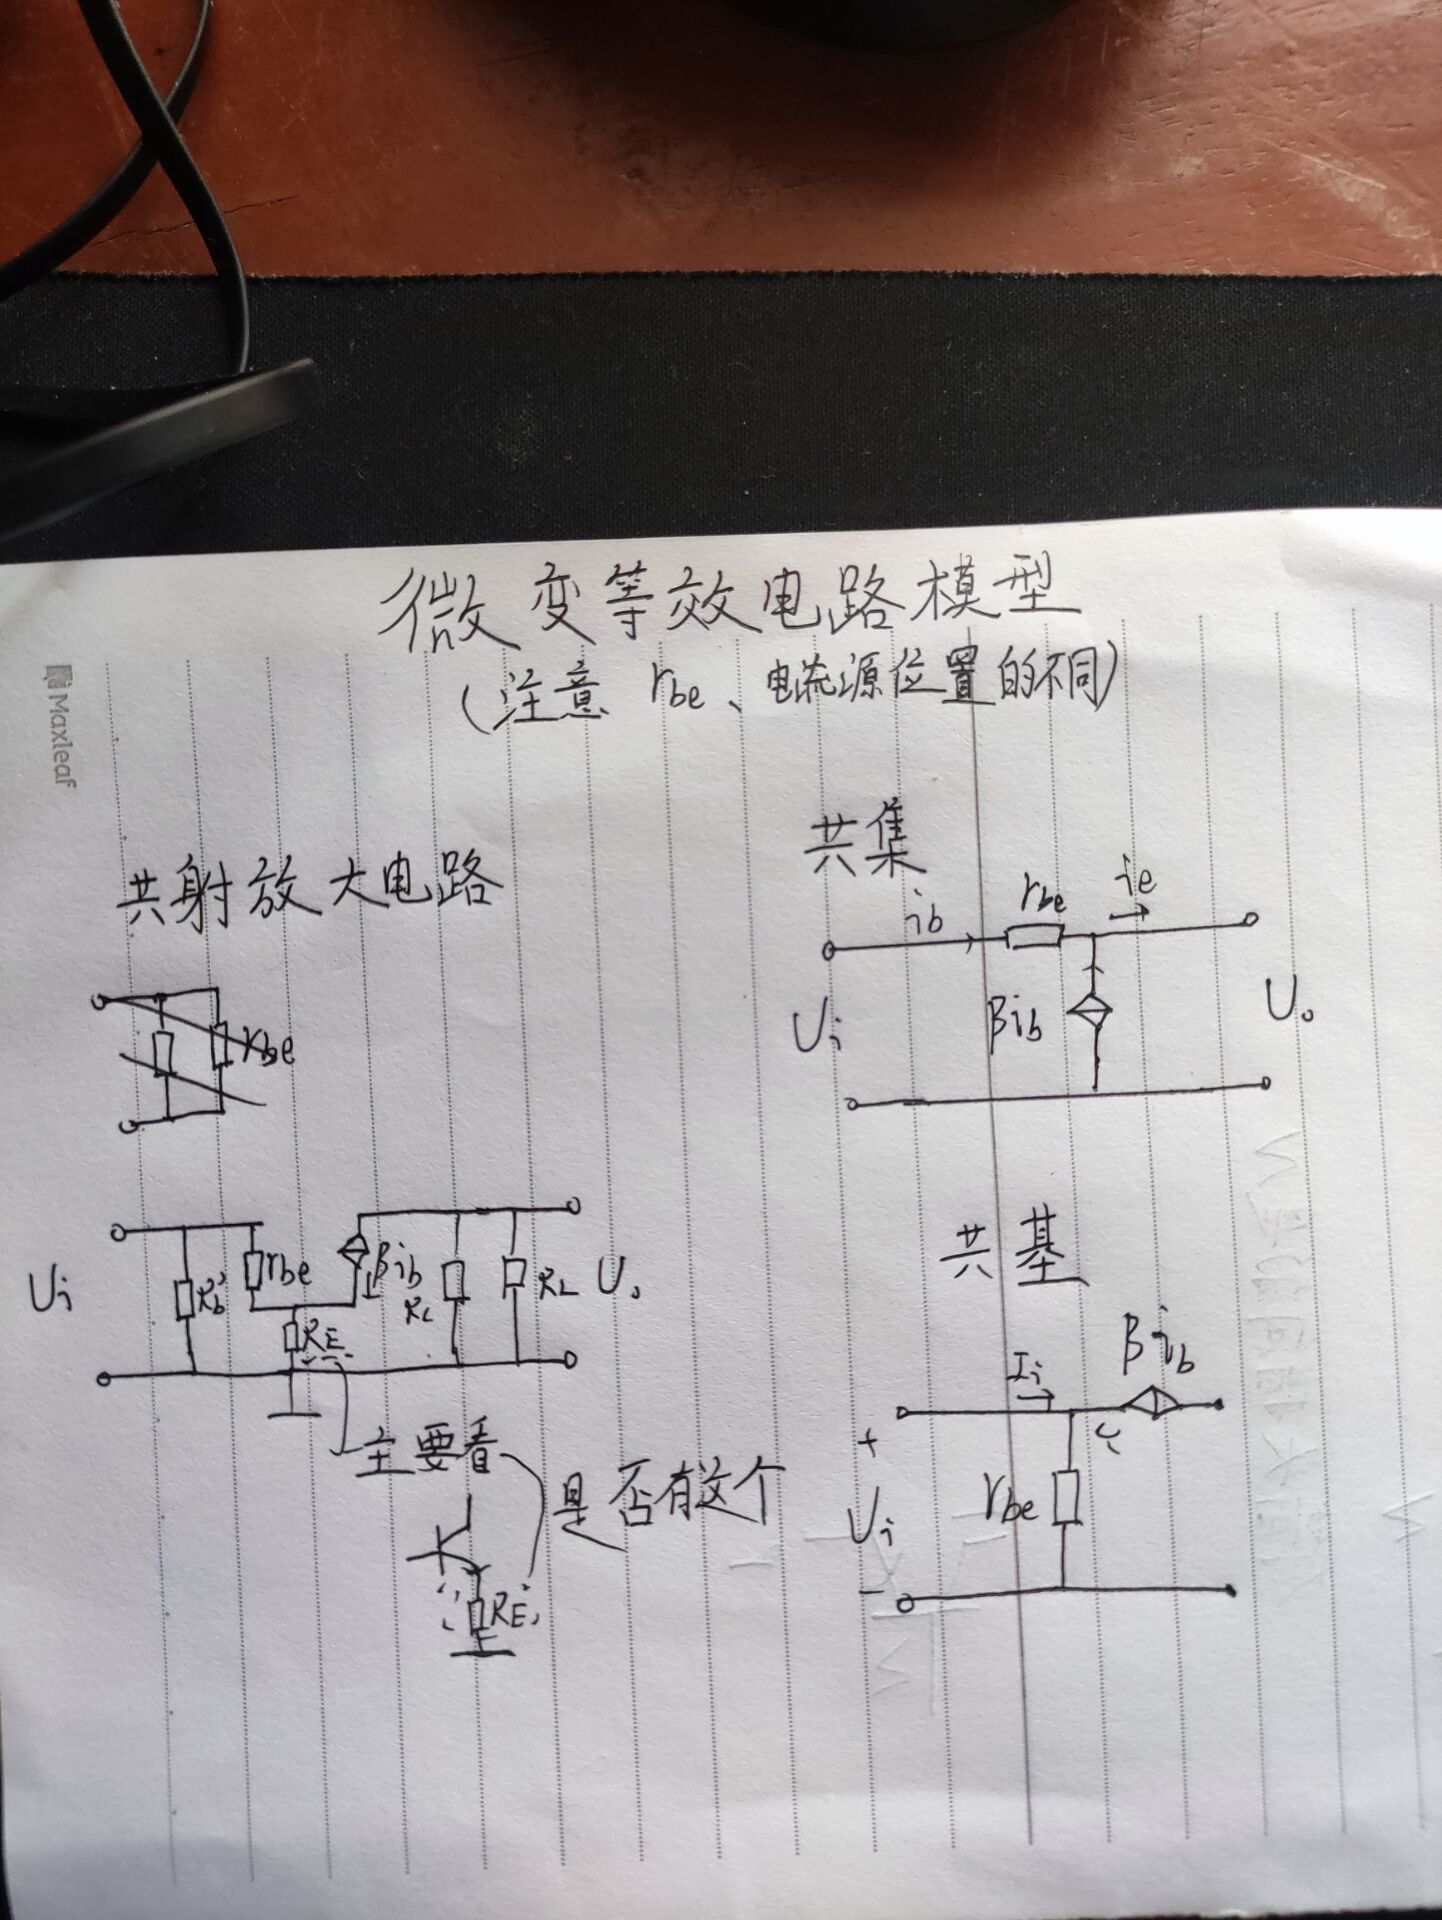 微变等效电路模型
(注意 rbe、电流源位置的不同)
Maxleaf
共射放大电路
rbe
Ui
Rb'
rbe
RE
βib
Rc
RL
Uo
主要看
是否有这个
RE
共集
ib
rbe
ie
Ui
βib
Uo
共基
Ii
βib
+
Ui
-
rbe